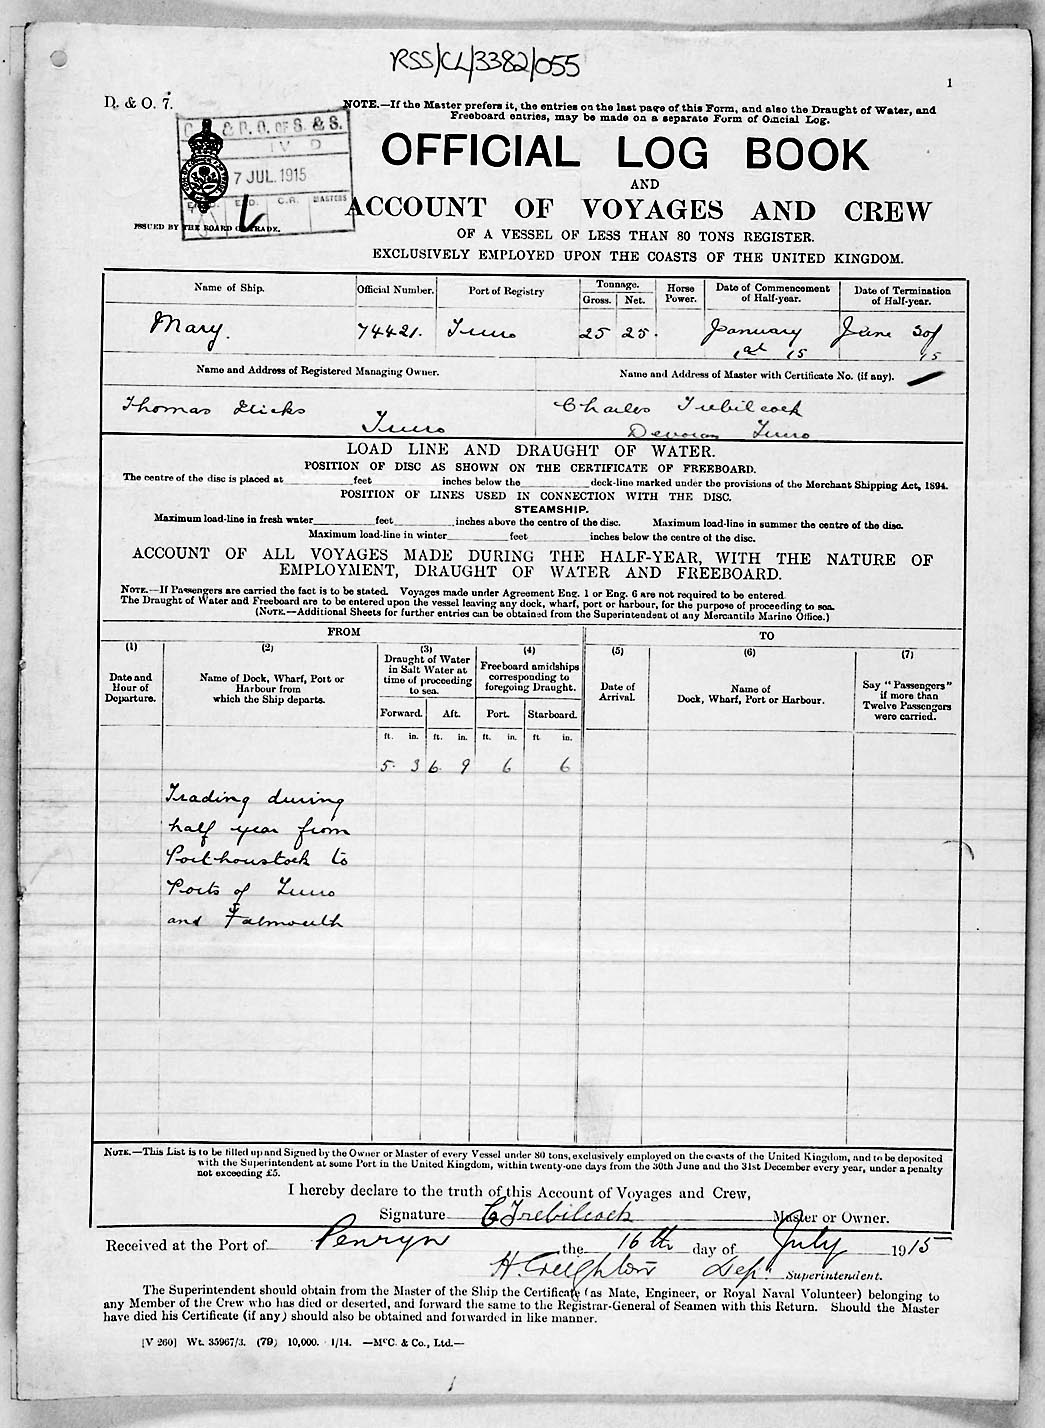 RSS/CL/3382/055
1
D. & O. 7.
NOTE.—If the Master prefers it, the entries on the last page of this Form, and also the Draught of Water, and
Freeboard entries, may be made on a separate Form of Official Log.
& R. O. OF S. & S.
7 JUL. 1915
C.R. MASTERS
ISSUED BY THE BOARD OF TRADE.
OFFICIAL LOG BOOK
AND
ACCOUNT OF VOYAGES AND CREW
OF A VESSEL OF LESS THAN 80 TONS REGISTER.
EXCLUSIVELY EMPLOYED UPON THE COASTS OF THE UNITED KINGDOM.
Name of Ship. Official Number. Port of Registry Tonnage. Gross. Net. Horse Power. Date of Commencement of Half-year. Date of Termination of Half-year.
Mary. 74421. Truro 25 25. January 1st 15 June 30 15
Name and Address of Registered Managing Owner. Name and Address of Master with Certificate No. (if any).
Thomas Hicks Charles Trebilcock
Truro Devoran Truro
LOAD LINE AND DRAUGHT OF WATER.
POSITION OF DISC AS SHOWN ON THE CERTIFICATE OF FREEBOARD.
The centre of the disc is placed at feet inches below the deck-line marked under the provisions of the Merchant Shipping Act, 1894.
POSITION OF LINES USED IN CONNECTION WITH THE DISC.
STEAMSHIP.
Maximum load-line in fresh water feet inches above the centre of the disc. Maximum load-line in summer the centre of the disc.
Maximum load-line in winter feet inches below the centre of the disc.
ACCOUNT OF ALL VOYAGES MADE DURING THE HALF-YEAR, WITH THE NATURE OF
EMPLOYMENT, DRAUGHT OF WATER AND FREEBOARD.
NOTE.—If Passengers are carried the fact is to be stated. Voyages made under Agreement Eng. 1 or Eng. 6 are not required to be entered.
The Draught of Water and Freeboard are to be entered upon the vessel leaving any dock, wharf, port or harbour, for the purpose of proceeding to sea.
(NOTE.—Additional Sheets for further entries can be obtained from the Superintendent of any Mercantile Marine Office.)
FROM TO
(1) (2) (3) (4) (5) (6) (7)
Date and Hour of Departure.
Name of Dock, Wharf, Port or Harbour from which the Ship departs.
Draught of Water in Salt Water at time of proceeding to sea.
Freeboard amidships corresponding to foregoing Draught.
Date of Arrival.
Name of Dock, Wharf, Port or Harbour.
Say "Passengers" if more than Twelve Passengers were carried.
Forward. Aft. Port. Starboard.
ft. in. ft. in. ft. in. ft in.
5. 3 6. 9 6 6
Trading during
half year from
Porthoustock to
Ports of Truro
and Falmouth
NOTE.—This List is to be filled up and Signed by the Owner or Master of every Vessel under 80 tons, exclusively employed on the coasts of the United Kingdom, and to be deposited
with the Superintendent at some Port in the United Kingdom, within twenty-one days from the 30th June and the 31st December every year, under a penalty
not exceeding £5.
I hereby declare to the truth of this Account of Voyages and Crew,
Signature C Trebilcock Master or Owner.
Received at the Port of Penryn the 16th day of July 1915
H. Creighton Dep. Superintendent.
The Superintendent should obtain from the Master of the Ship the Certificate (as Mate, Engineer, or Royal Naval Volunteer) belonging to
any Member of the Crew who has died or deserted, and forward the same to the Registrar-General of Seamen with this Return. Should the Master
have died his Certificate (if any) should also be obtained and forwarded in like manner.
[V 260] Wt. 35967/3. (79) 10,000. 1/14. —McC. & Co., Ltd.—